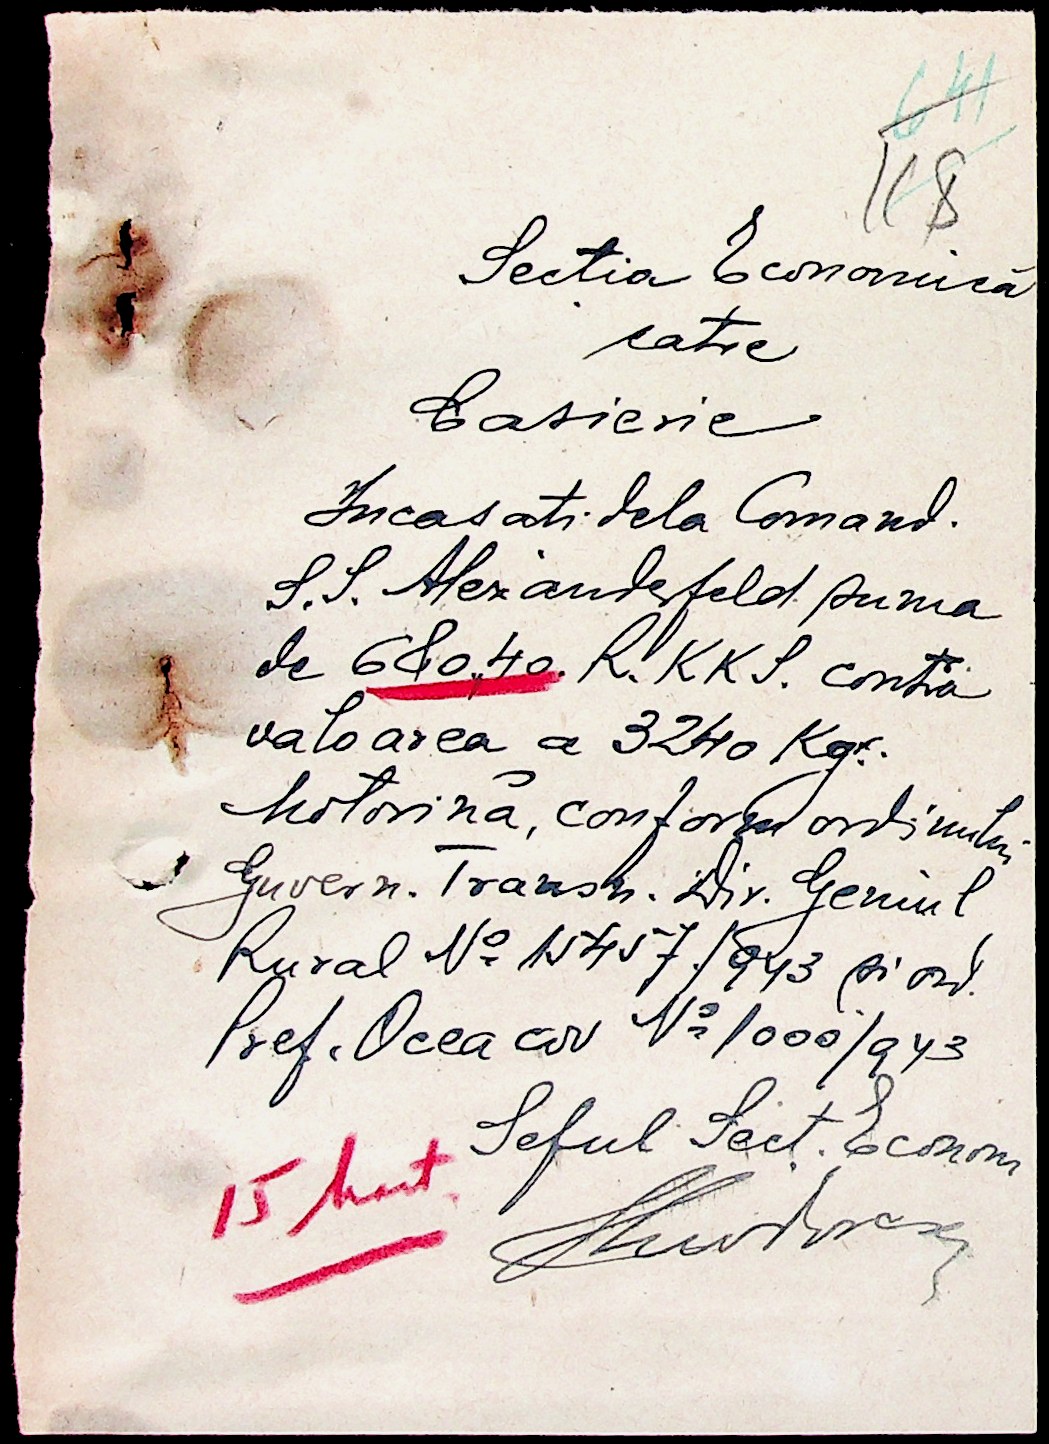 641
118
Sectia Economică
catre
Casierie
Incasati dela Comand.
S.S. Alexanderfeld suma
de 680,40. R.KKS. contra
valoarea a 3240 Kgr.
Motorină, conform ordinului
Guvern. Transn. Dir. Geniul
Rural Nº 15457/943 si ord.
Pref. Oceacov Nº 1000/943
Seful Sect. Econom
15 Mart.